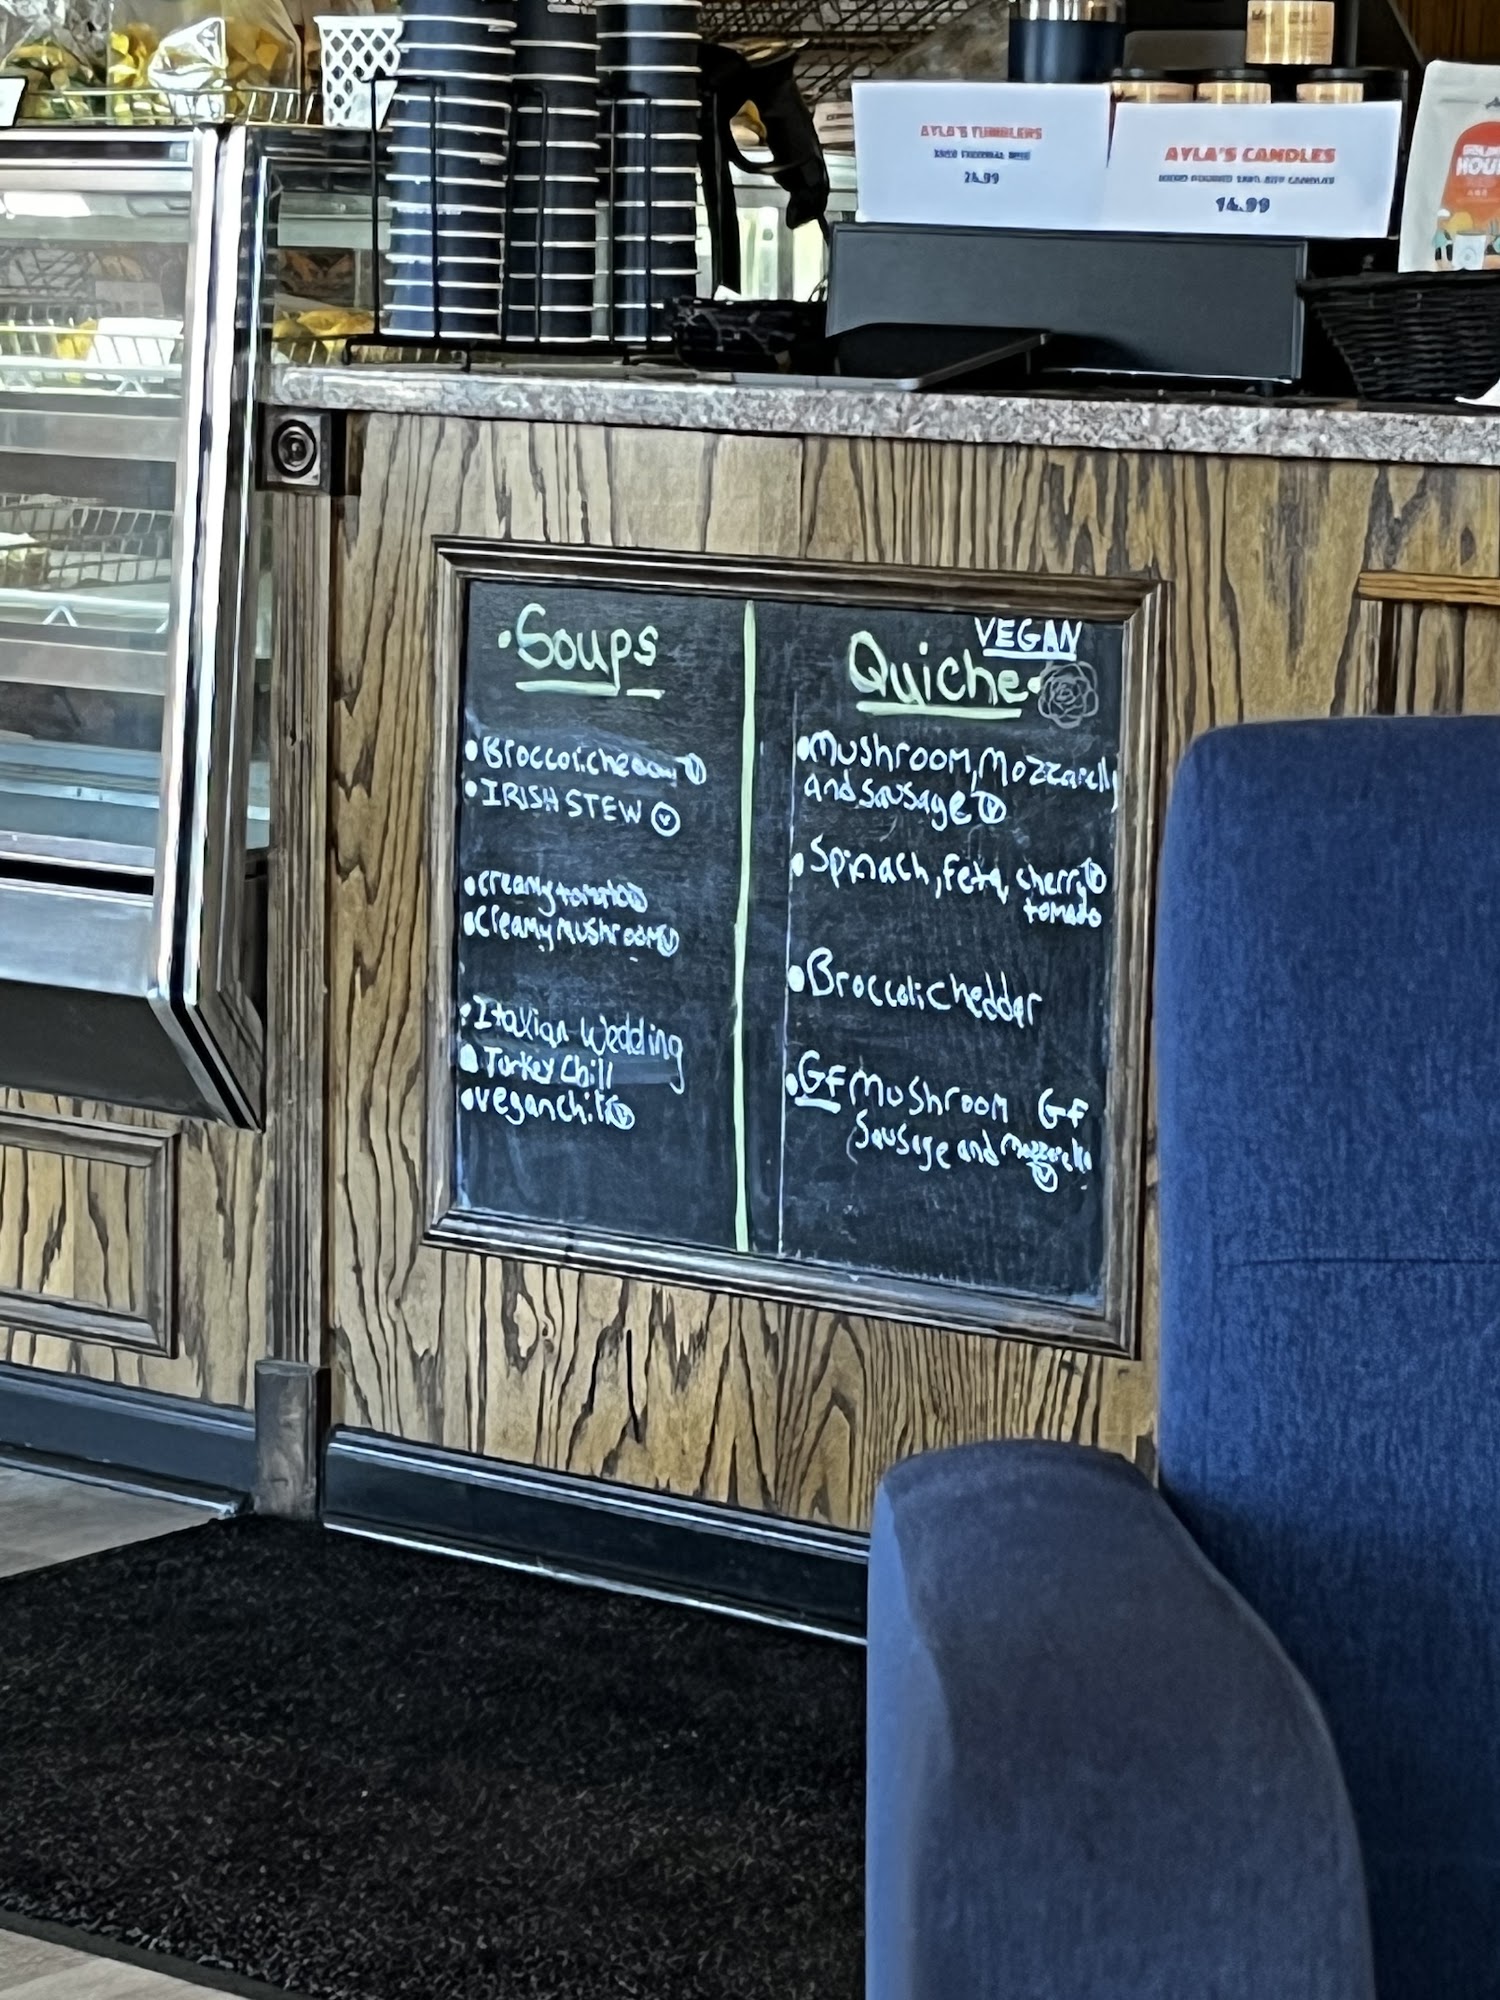 AYLA'S TUMBLERS
24.99
AYLA'S CANDLES
14.99
HOUR
•Soups
•Broccoli cheddar Ⓥ
•IRISH STEW Ⓥ
•creamy tomato Ⓥ
•Creamy mushroom Ⓥ
•Italian wedding
•Turkey Chili
•vegan chili Ⓥ
VEGAN
Quiche•
•Mushroom, Mozzarella
and sausage Ⓥ
•Spinach, Feta, cherry Ⓥ
tomado
•Broccoli Chedder
•GF Mushroom GF
Sausage and Mozzarella
Ⓥ